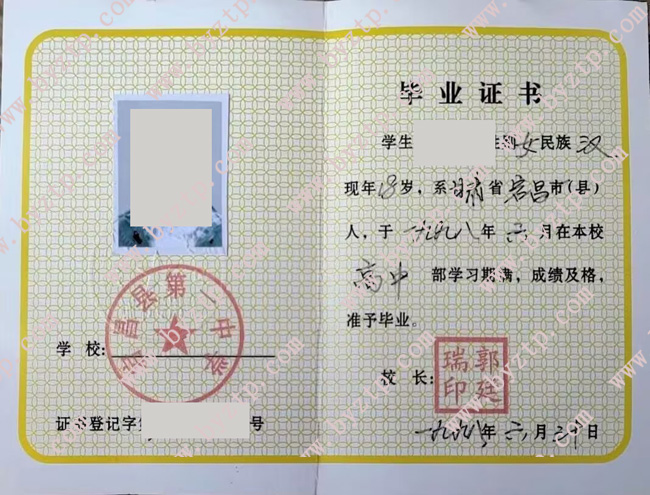 毕业证书
学生 性别女民族汉
现年18岁,系甘肃省宕昌市(县)
人,于一九九八年六月在本校
高中部学习期满,成绩及格,
准予毕业。
宕昌县第一中学
学校:
校长:
郭廷瑞印
证书登记字 号
一九九八年六月二十日
www.byztp.com